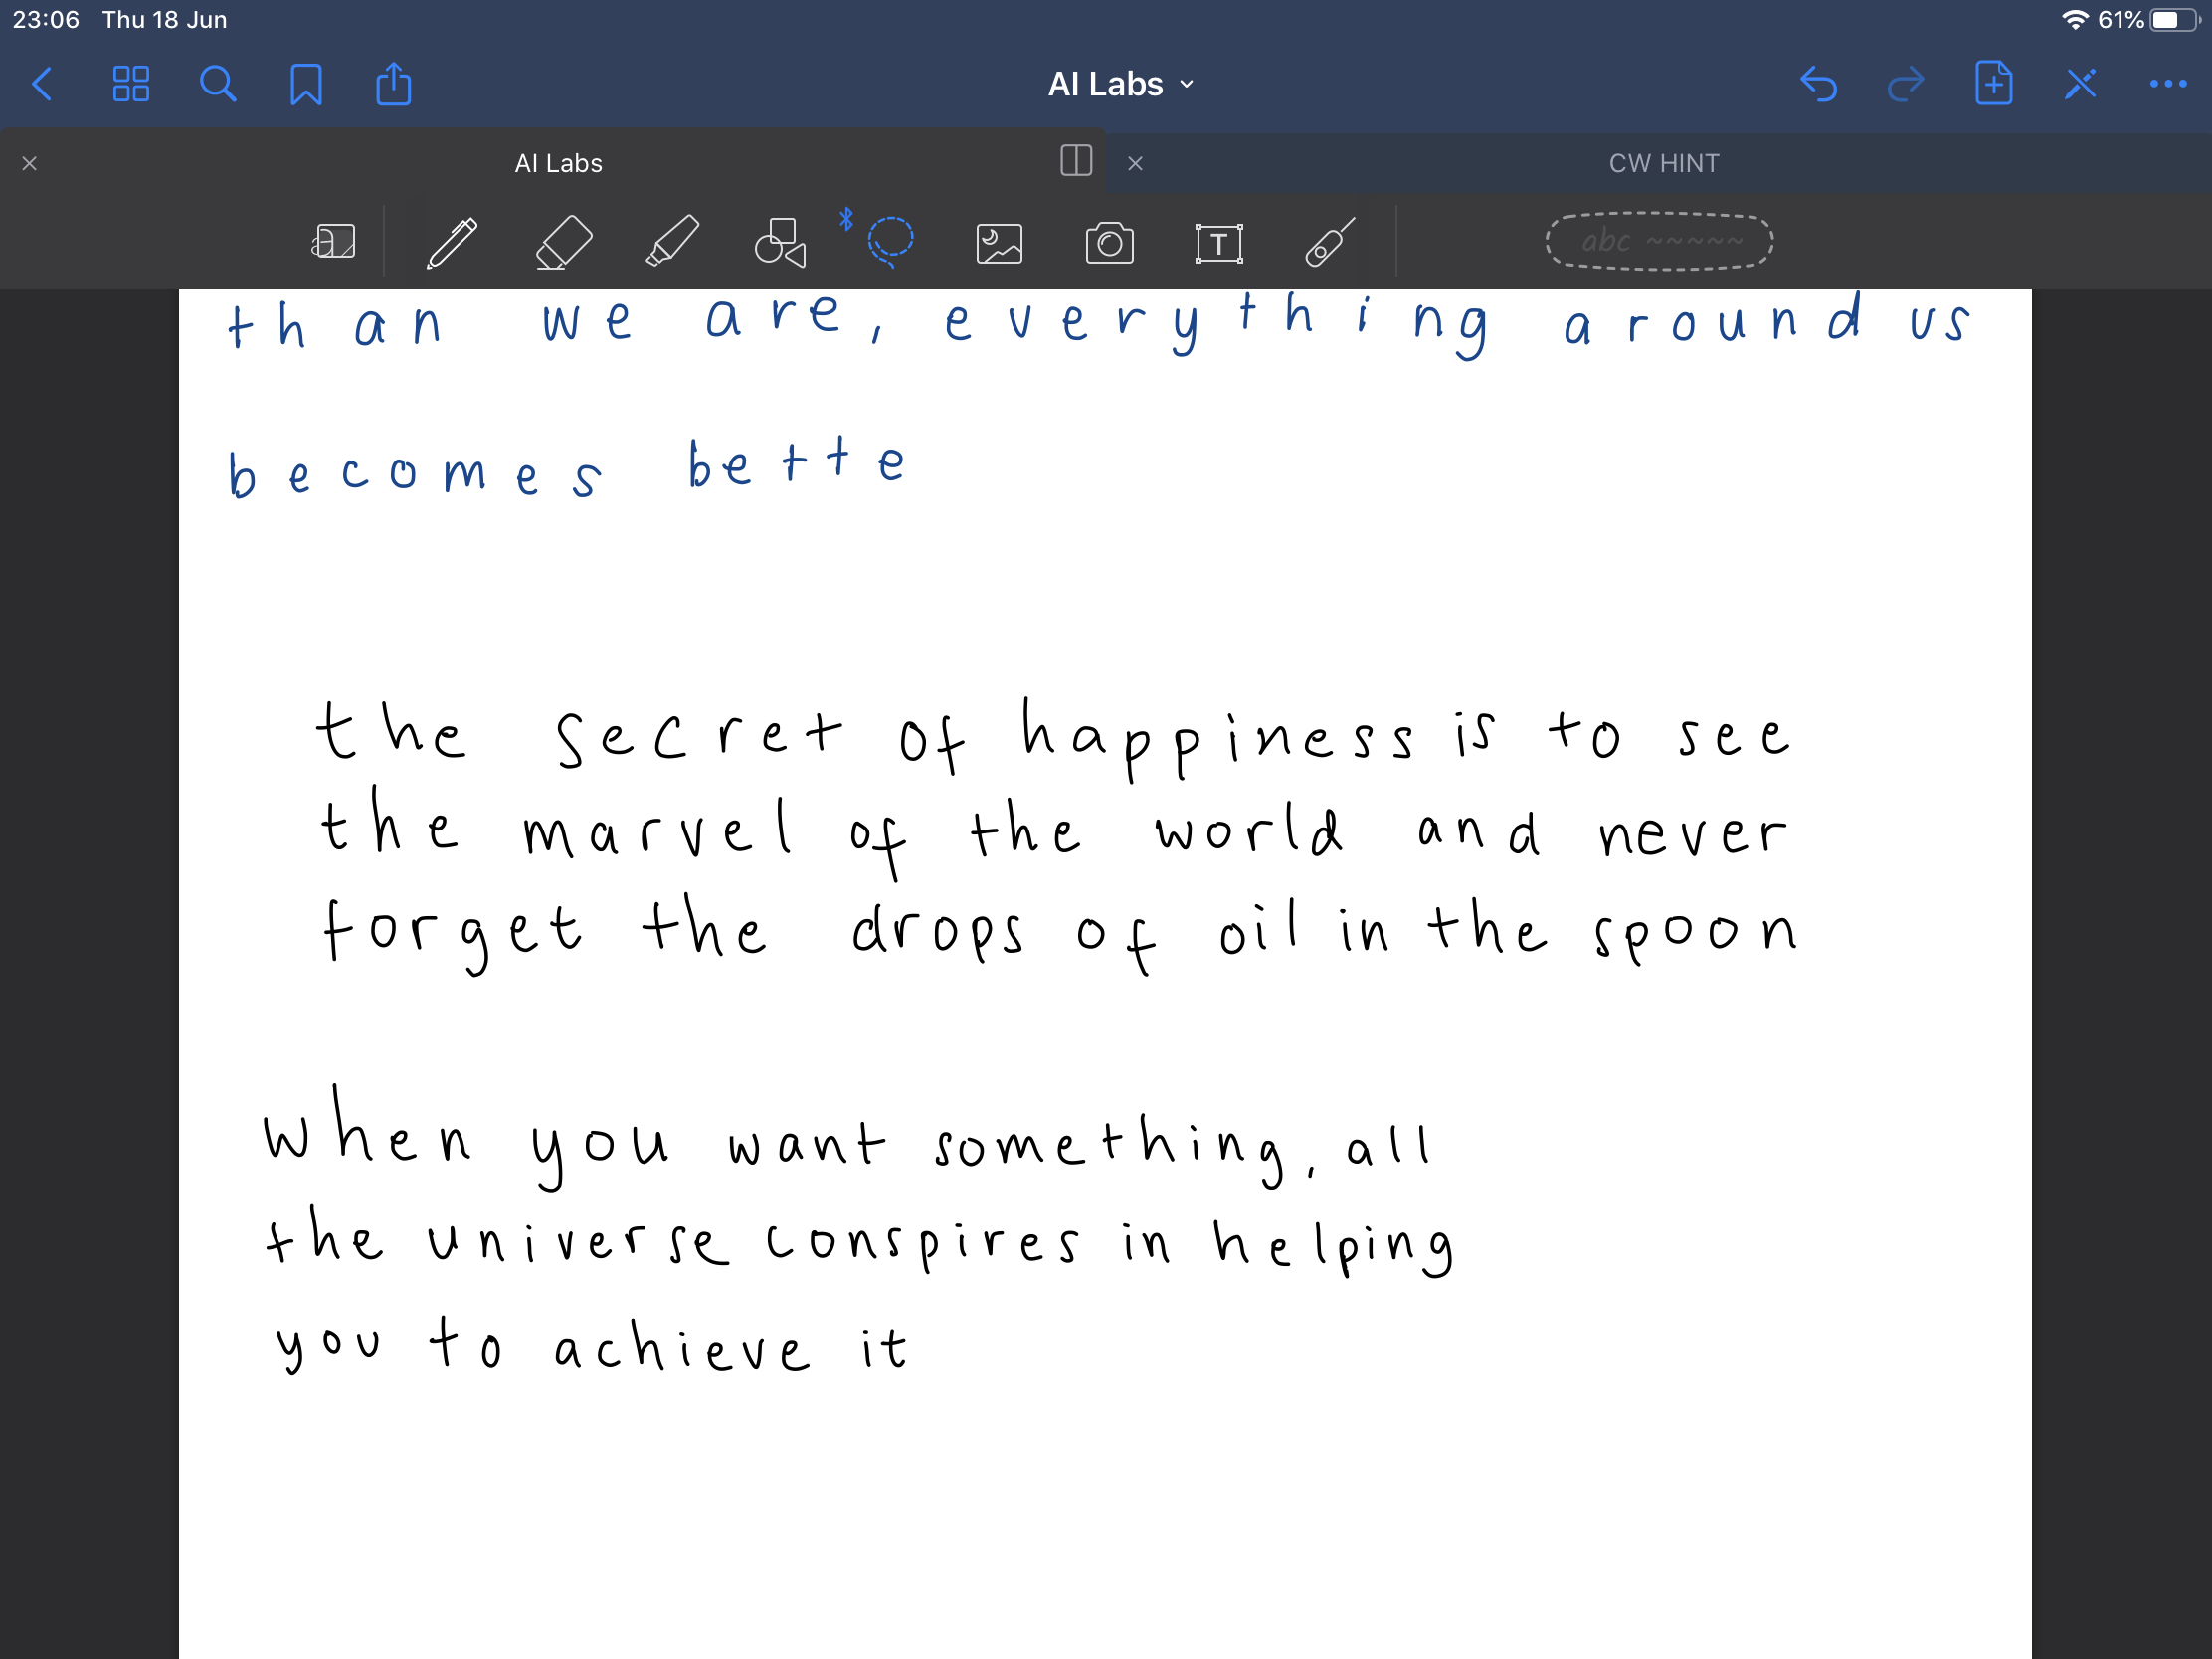 23:06 Thu 18 Jun 61%
AI Labs
AI Labs CW HINT
T abc
than we are, everything around us
becomes bette
the secret of happiness is to see
the marvel of the world and never
forget the drops of oil in the spoon
when you want something, all
the universe conspires in helping
you to achieve it